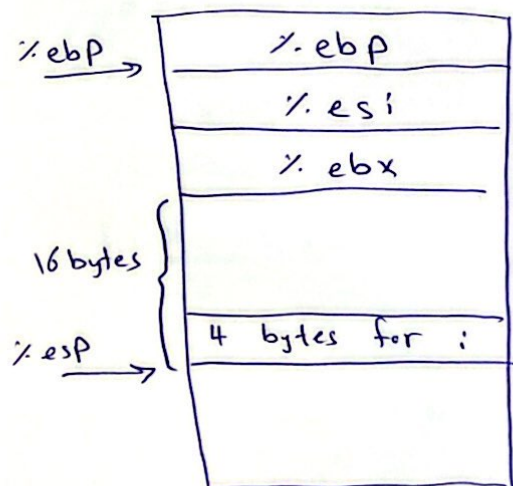 %ebp
%ebp
%esi
%ebx
16 bytes
4 bytes for i
%esp